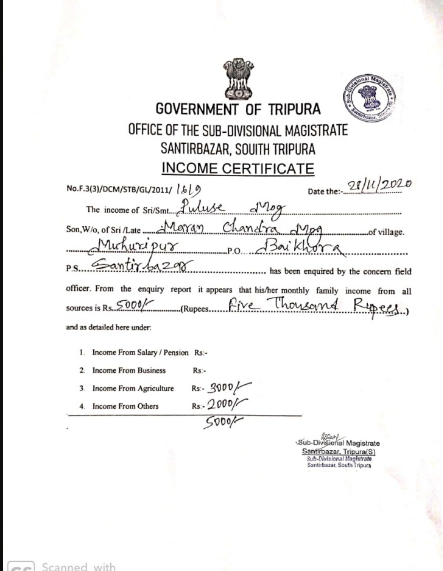 GOVERNMENT OF TRIPURA
OFFICE OF THE SUB-DIVISIONAL MAGISTRATE
SANTIRBAZAR, SOUITH TRIPURA
INCOME CERTIFICATE
No.F.3(3)/DCM/STB/GL/2011/ 1619
Date the:- 28/11/2020
The income of Sri/Smt. Puluse Mog
Son,W/o, of Sri /Late Moran Chandra Mog of village.
Muhuripur P.O. Baikhora
P S. Santirbazar has been enquired by the concern field
officer. From the enquiry report it appears that his/her monthly family income from all
sources is Rs. 5000/- (Rupees. Five Thousand Rupees..)
and as detailed here under:
1. Income From Salary / Pension Rs:-
2. Income From Business Rs:-
3. Income From Agriculture Rs:- 3000/-
4. Income From Others Rs:- 2000/-
5000/-
Sub-Divisional Magistrate
Santirbazar, Tripura(S)
Sub-Divisional Magistrate
Santirbazar, South Tripura
Scanned with